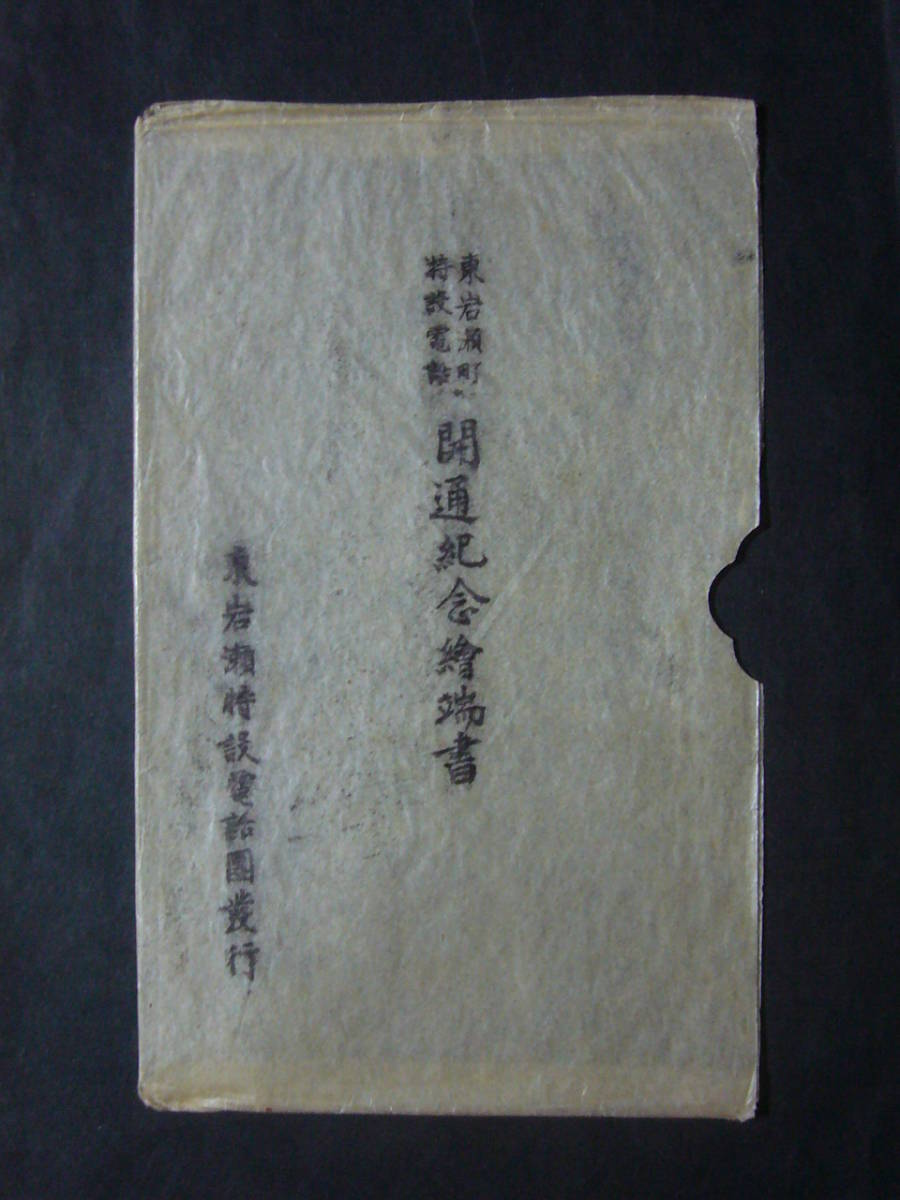 東岩瀬町
特設電話
開通紀念繪端書
東岩瀬特設電話團發行